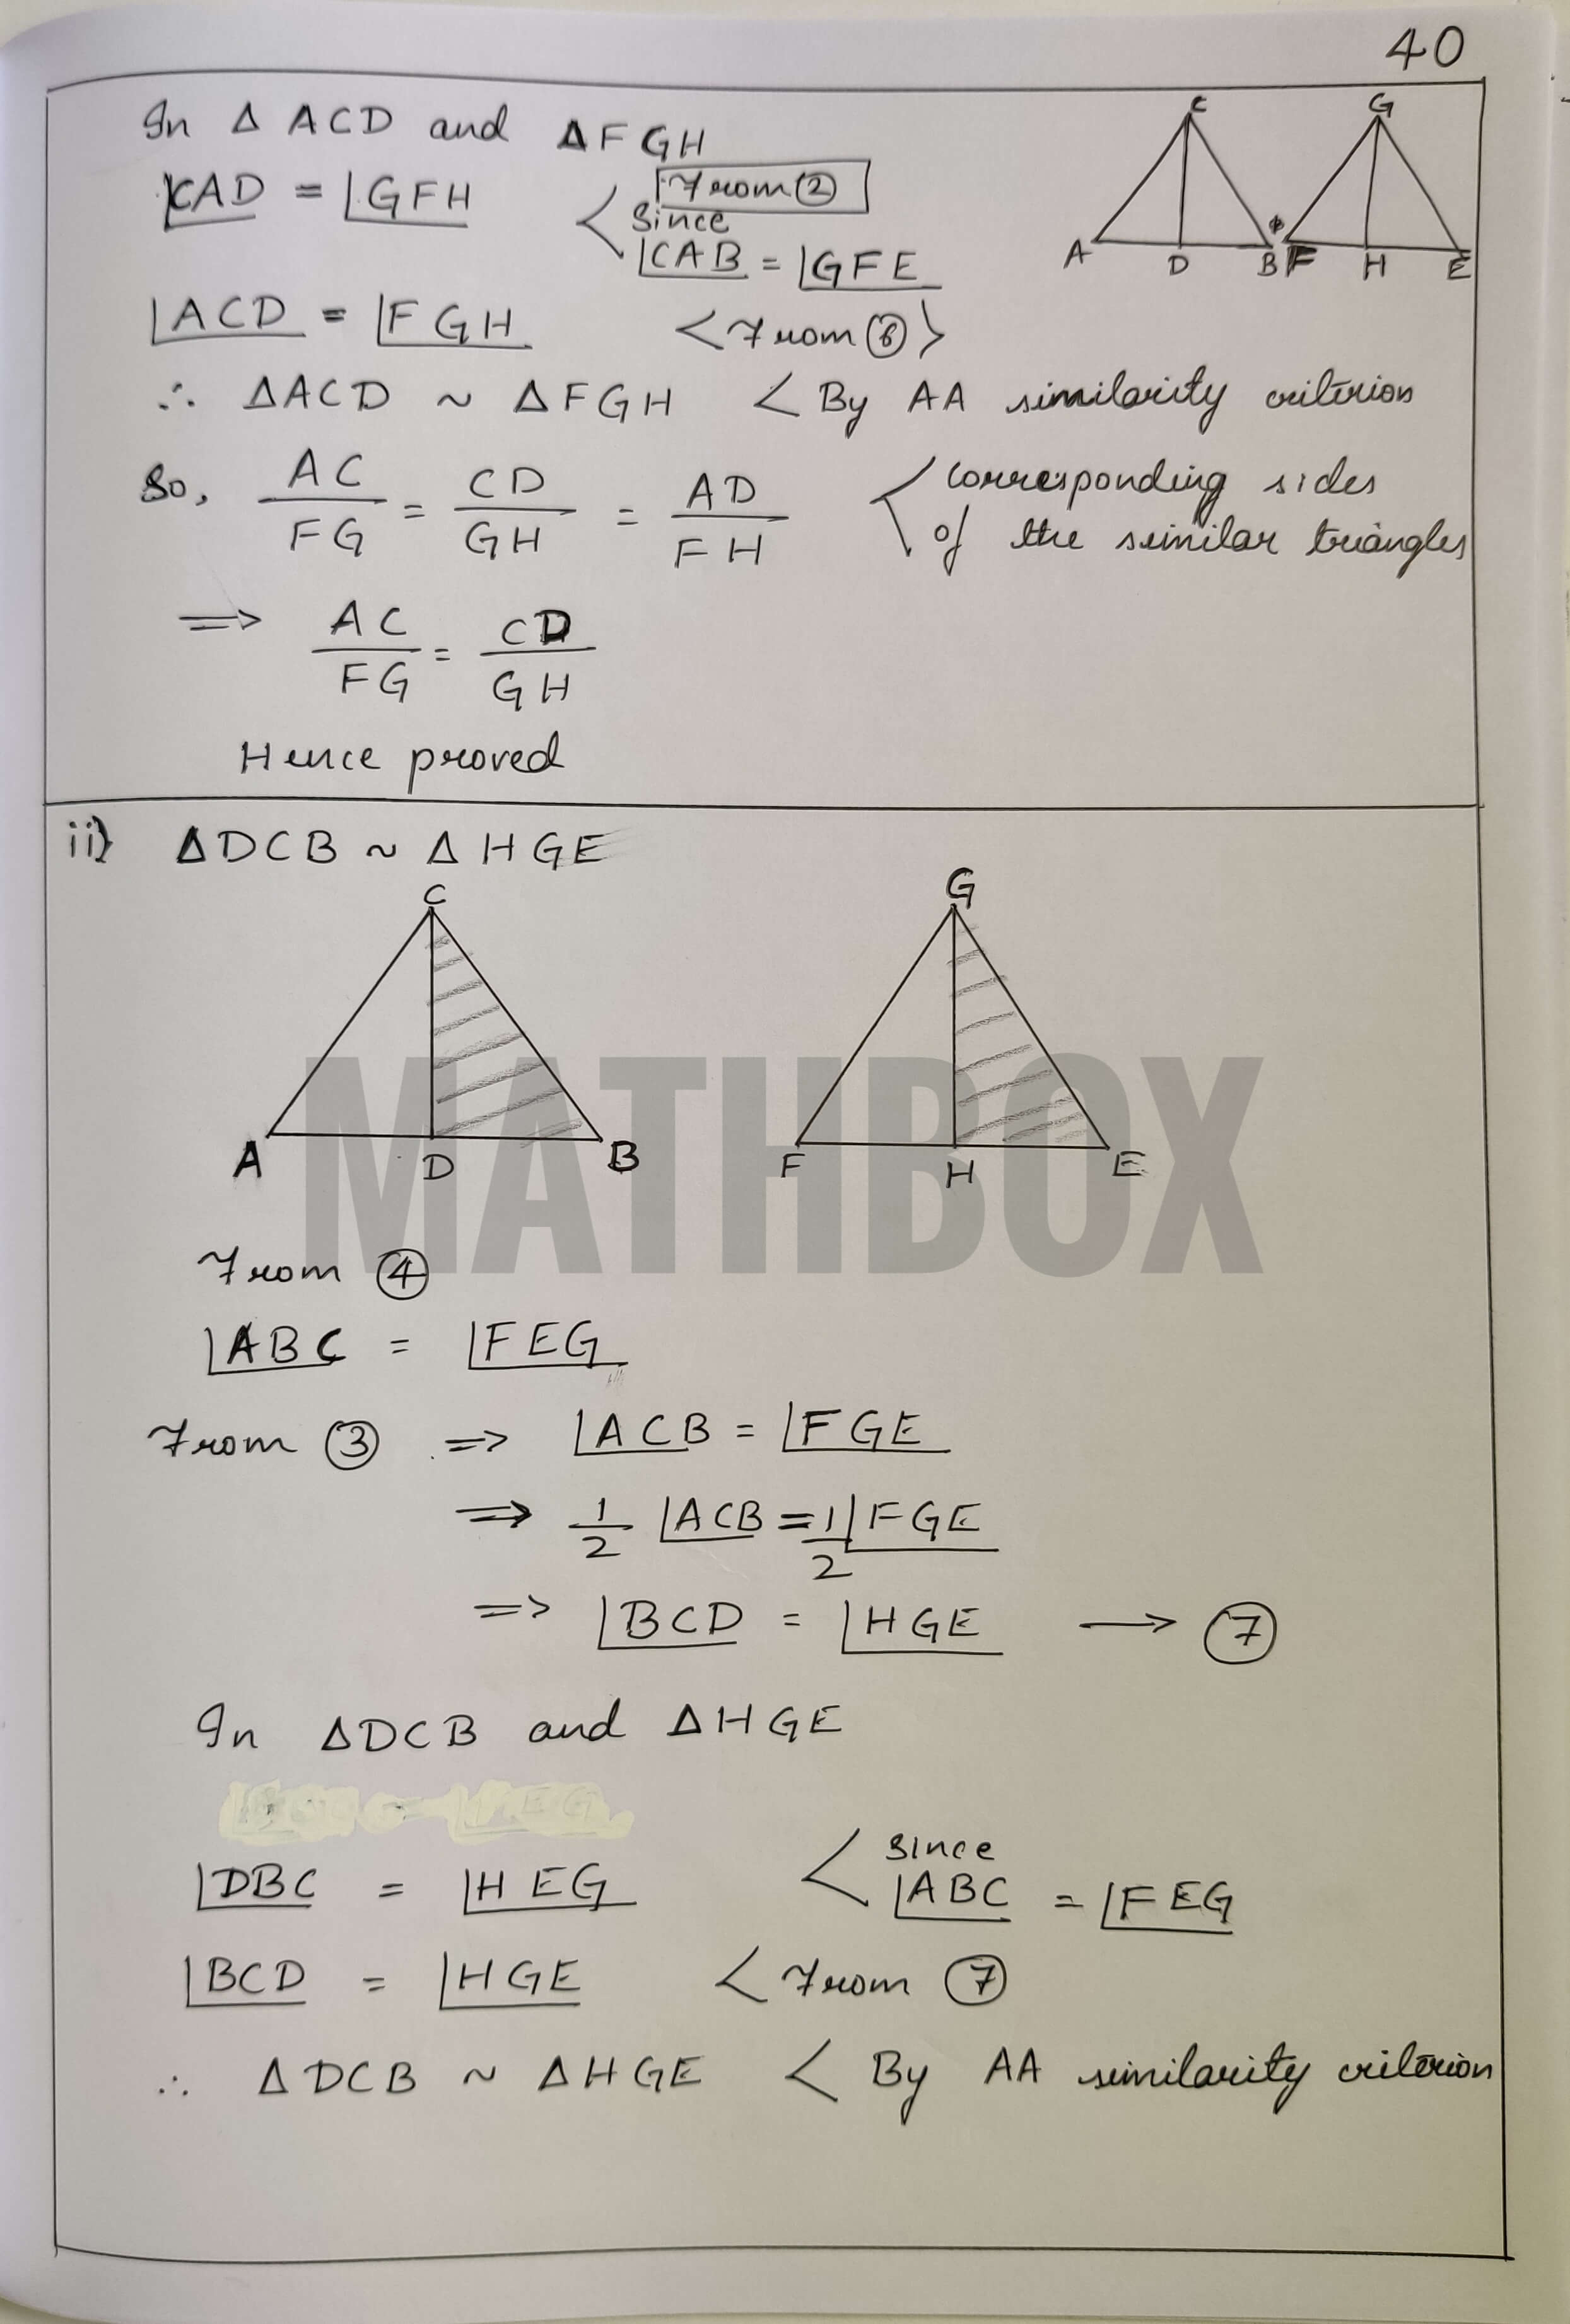 40
In Δ ACD and ΔFGH
∠CAD = ∠GFH < From ②
since
∠CAB = ∠GFE
C G
A D B F H E
∠ACD = ∠FGH <From ⑥>
∴ ΔACD ~ ΔFGH < By AA similarity criterion
So, AC/FG = CD/GH = AD/FH < corresponding sides
of the similar triangles
⇒ AC/FG = CD/GH
Hence proved
ii) ΔDCB ~ ΔHGE
C G
A D B F H E
MATHBOX
From ④
∠ABC = ∠FEG
From ③ ⇒ ∠ACB = ∠FGE
⇒ 1/2 ∠ACB = 1/2 ∠FGE
⇒ ∠BCD = ∠HGE → ⑦
In ΔDCB and ΔHGE
∠DBC = ∠HEG < since
∠ABC = ∠FEG
∠BCD = ∠HGE < From ⑦
∴ ΔDCB ~ ΔHGE < By AA similarity criterion